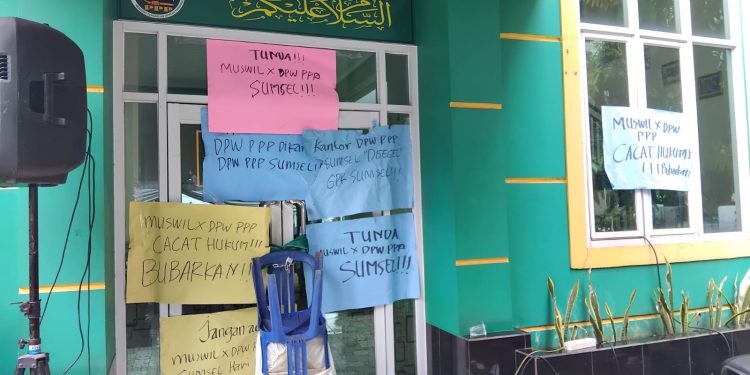 PPP
السلام عليكم
TUNDA!!!
MUSWIL X DPW PPP
SUMSEL!!!
DPW PPP
DPW PPP SUMSEL
Kantor DPW PPP
SUMSEL "DISEGEL"
GPK SUMSEL!!
MUSWIL X DPW PPP
CACAT HUKUM!!!
BUBARKAN!!!
TUNDA
MUSWIL X DPW PPP
SUMSEL!!!
Jangan
MUSWIL X DPW
SUMSEL Hari
MUSWIL X DPW
PPP
CACAT HUKUM
!!! Bubarkan